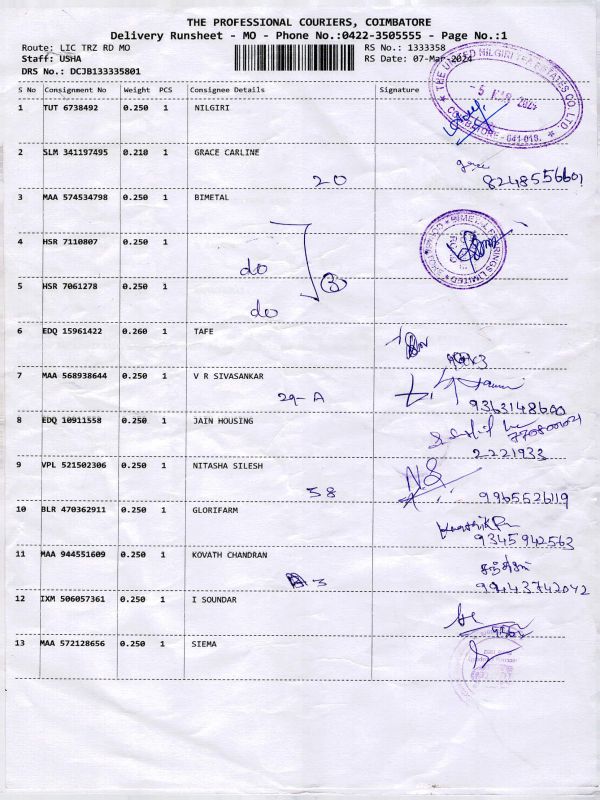 THE PROFESSIONAL COURIERS, COIMBATORE
Delivery Runsheet - MO - Phone No.:0422-3505555 - Page No.:1
Route: LIC TRZ RD MO RS No.: 1333358
Staff: USHA RS Date: 07-Mar-2024
DRS No.: DCJB133335801
S No Consignment No Weight PCS Consignee Details Signature
1 TUT 6738492 0.250 1 NILGIRI
THE UNITED NILGIRI TEA ESTATES CO. LTD
COIMBATORE - 641 018.
2 SLM 341197495 0.210 1 GRACE CARLINE
20 8248556601
3 MAA 574534798 0.250 1 BIMETAL
BIMETAL BEARINGS LIMITED
4 HSR 7110807 0.250 1
do 3
5 HSR 7061278 0.250 1
do
6 EDQ 15961422 0.260 1 TAFE
7 MAA 568938644 0.250 1 V R SIVASANKAR
29-A 9363148600
8 EDQ 10911558 0.250 1 JAIN HOUSING
2221933
9 VPL 521502306 0.250 1 NITASHA SILESH
58 N.S 9965526119
10 BLR 470362911 0.250 1 GLORIFARM
9345942563
11 MAA 944551609 0.250 1 KOVATH CHANDRAN
3 9943742042
12 IXM 506057361 0.250 1 I SOUNDAR
13 MAA 572128656 0.250 1 SIEMA